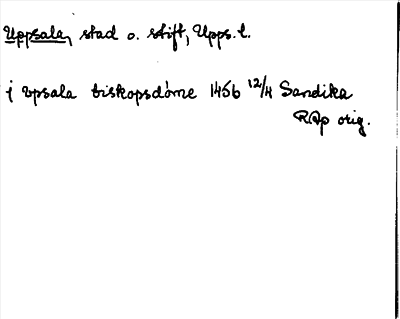 Uppsala, stad o. stift, Upps. l.
j vpsala biskopsdöme 1456 12/4 Sandika
RAp orig.